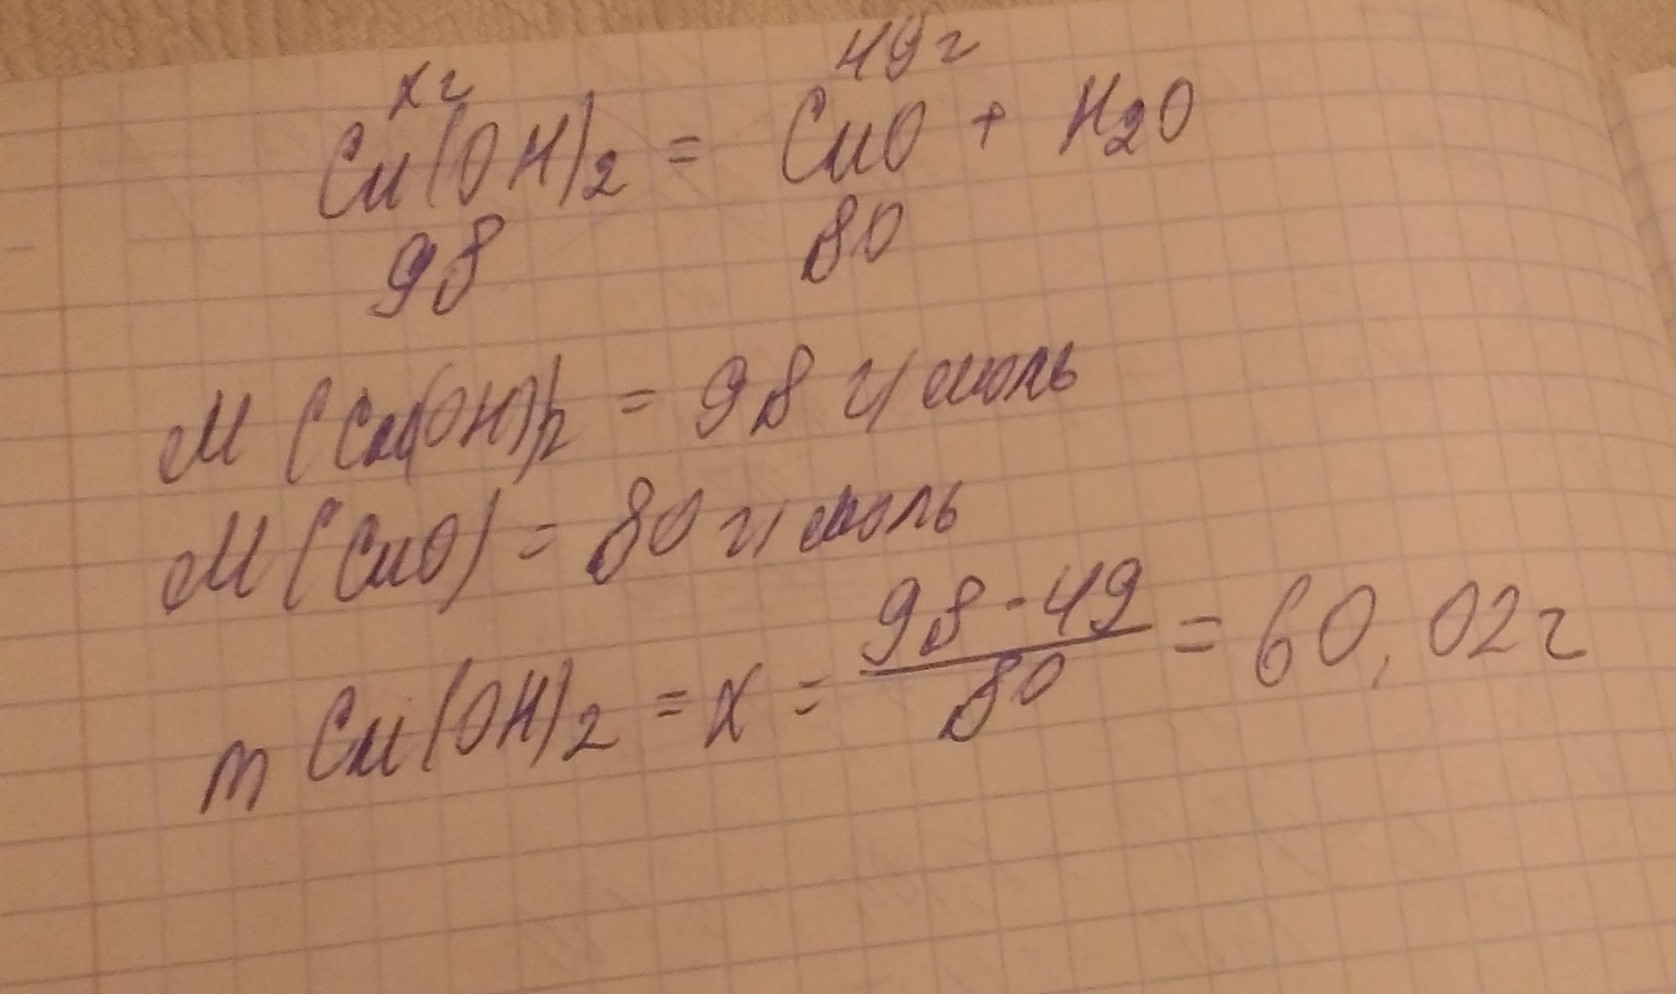 x г 49 г
Cu(OH)2 = CuO + H2O
98 80
M (Cu(OH)2 = 98 г/моль
M (CuO) = 80 г/моль
m Cu(OH)2 = x = 98 · 49 / 80 = 60,02 г